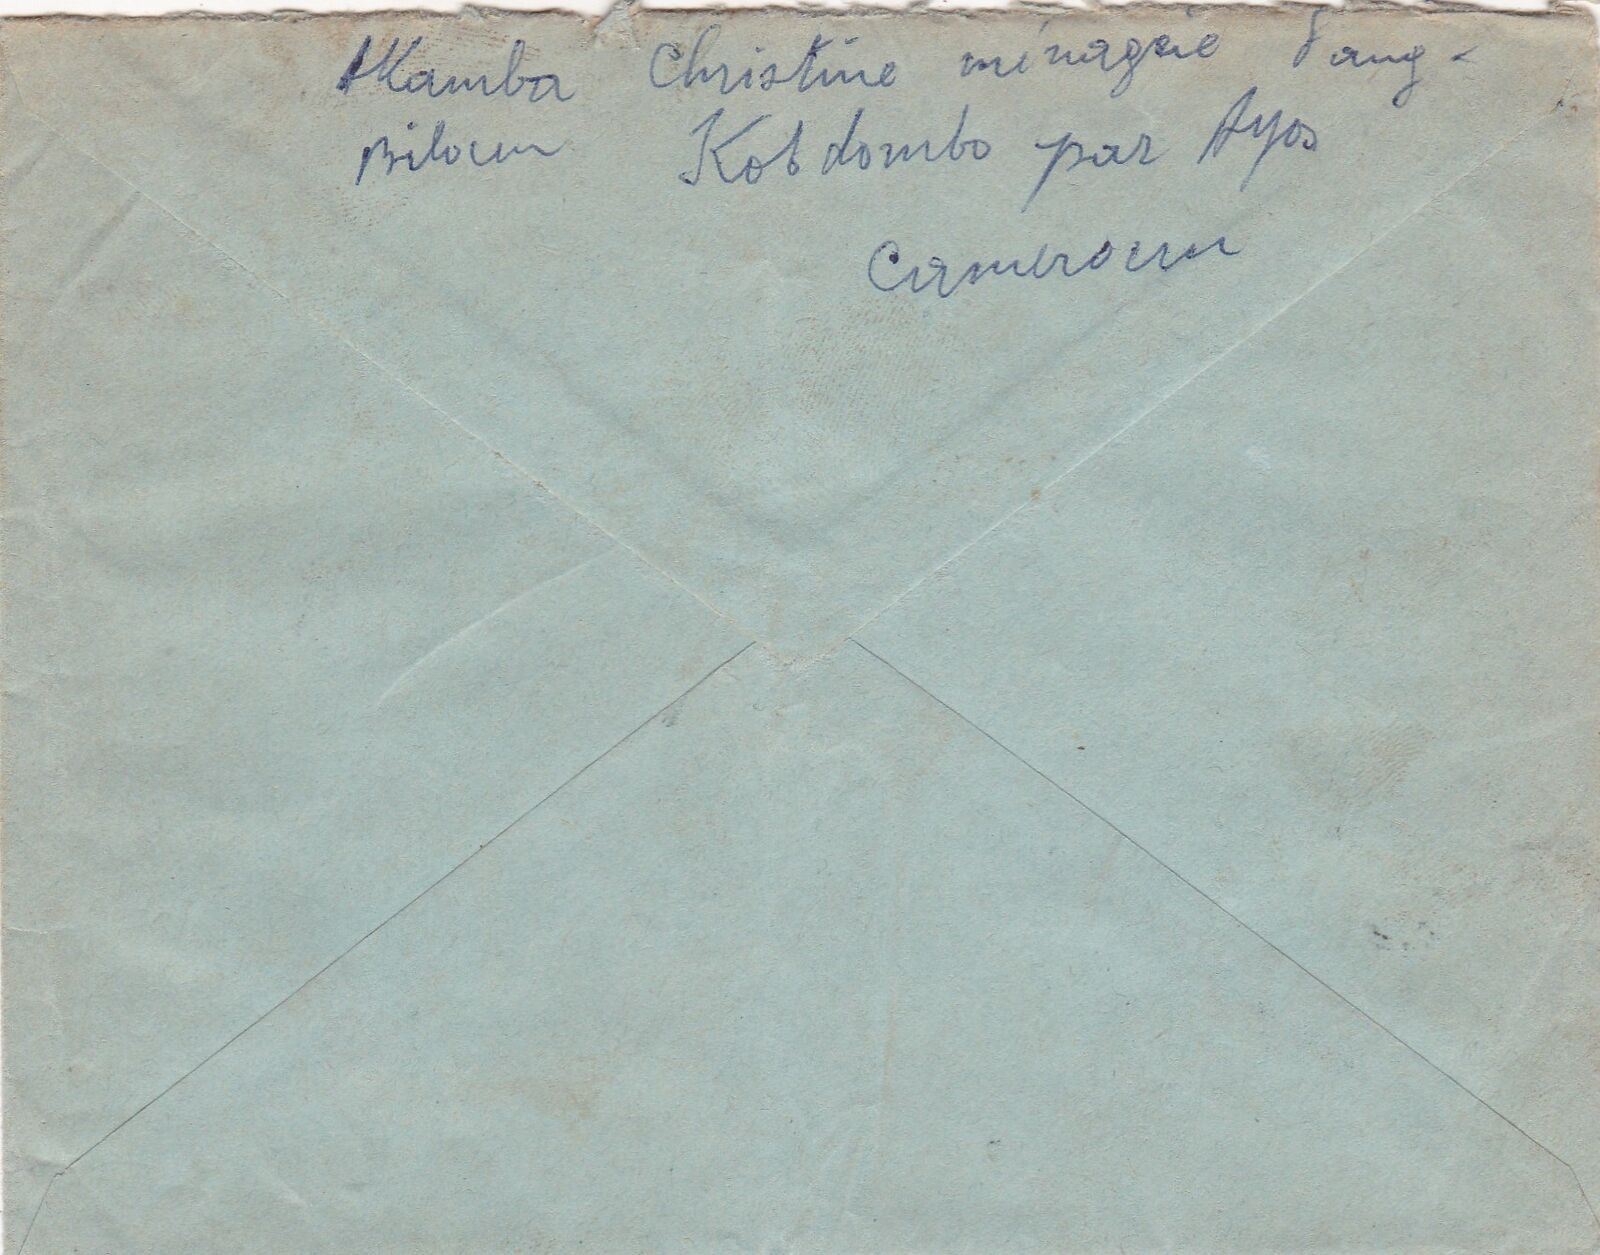 Akamba Christine ménagère Fang-
Biloun Kobdombo par Ayos
Cameroun